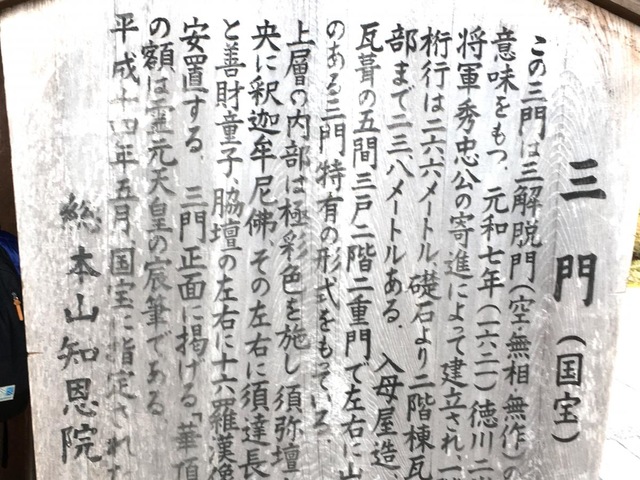 三門（国宝）
この三門は三解脱門（空・無相・無作）の
意味をもつ。元和七年（一六二一）徳川二
将軍秀忠公の寄進によって建立され、一階
桁行は二六.六メートル、礎石より二階棟瓦
部まで二三.八メートルある。入母屋造、
瓦葺の五間三戸二階二重門で左右に山
のある三門特有の形式をもっている。
上層の内部は極彩色を施し、須弥壇
央に釈迦牟尼佛、その左右に須達長
と善財童子、脇壇の左右に十六羅漢像
安置する。三門正面に掲げる「華頂
の額は霊元天皇の宸筆である。
平成十四年五月、国宝に指定された
総本山知恩院